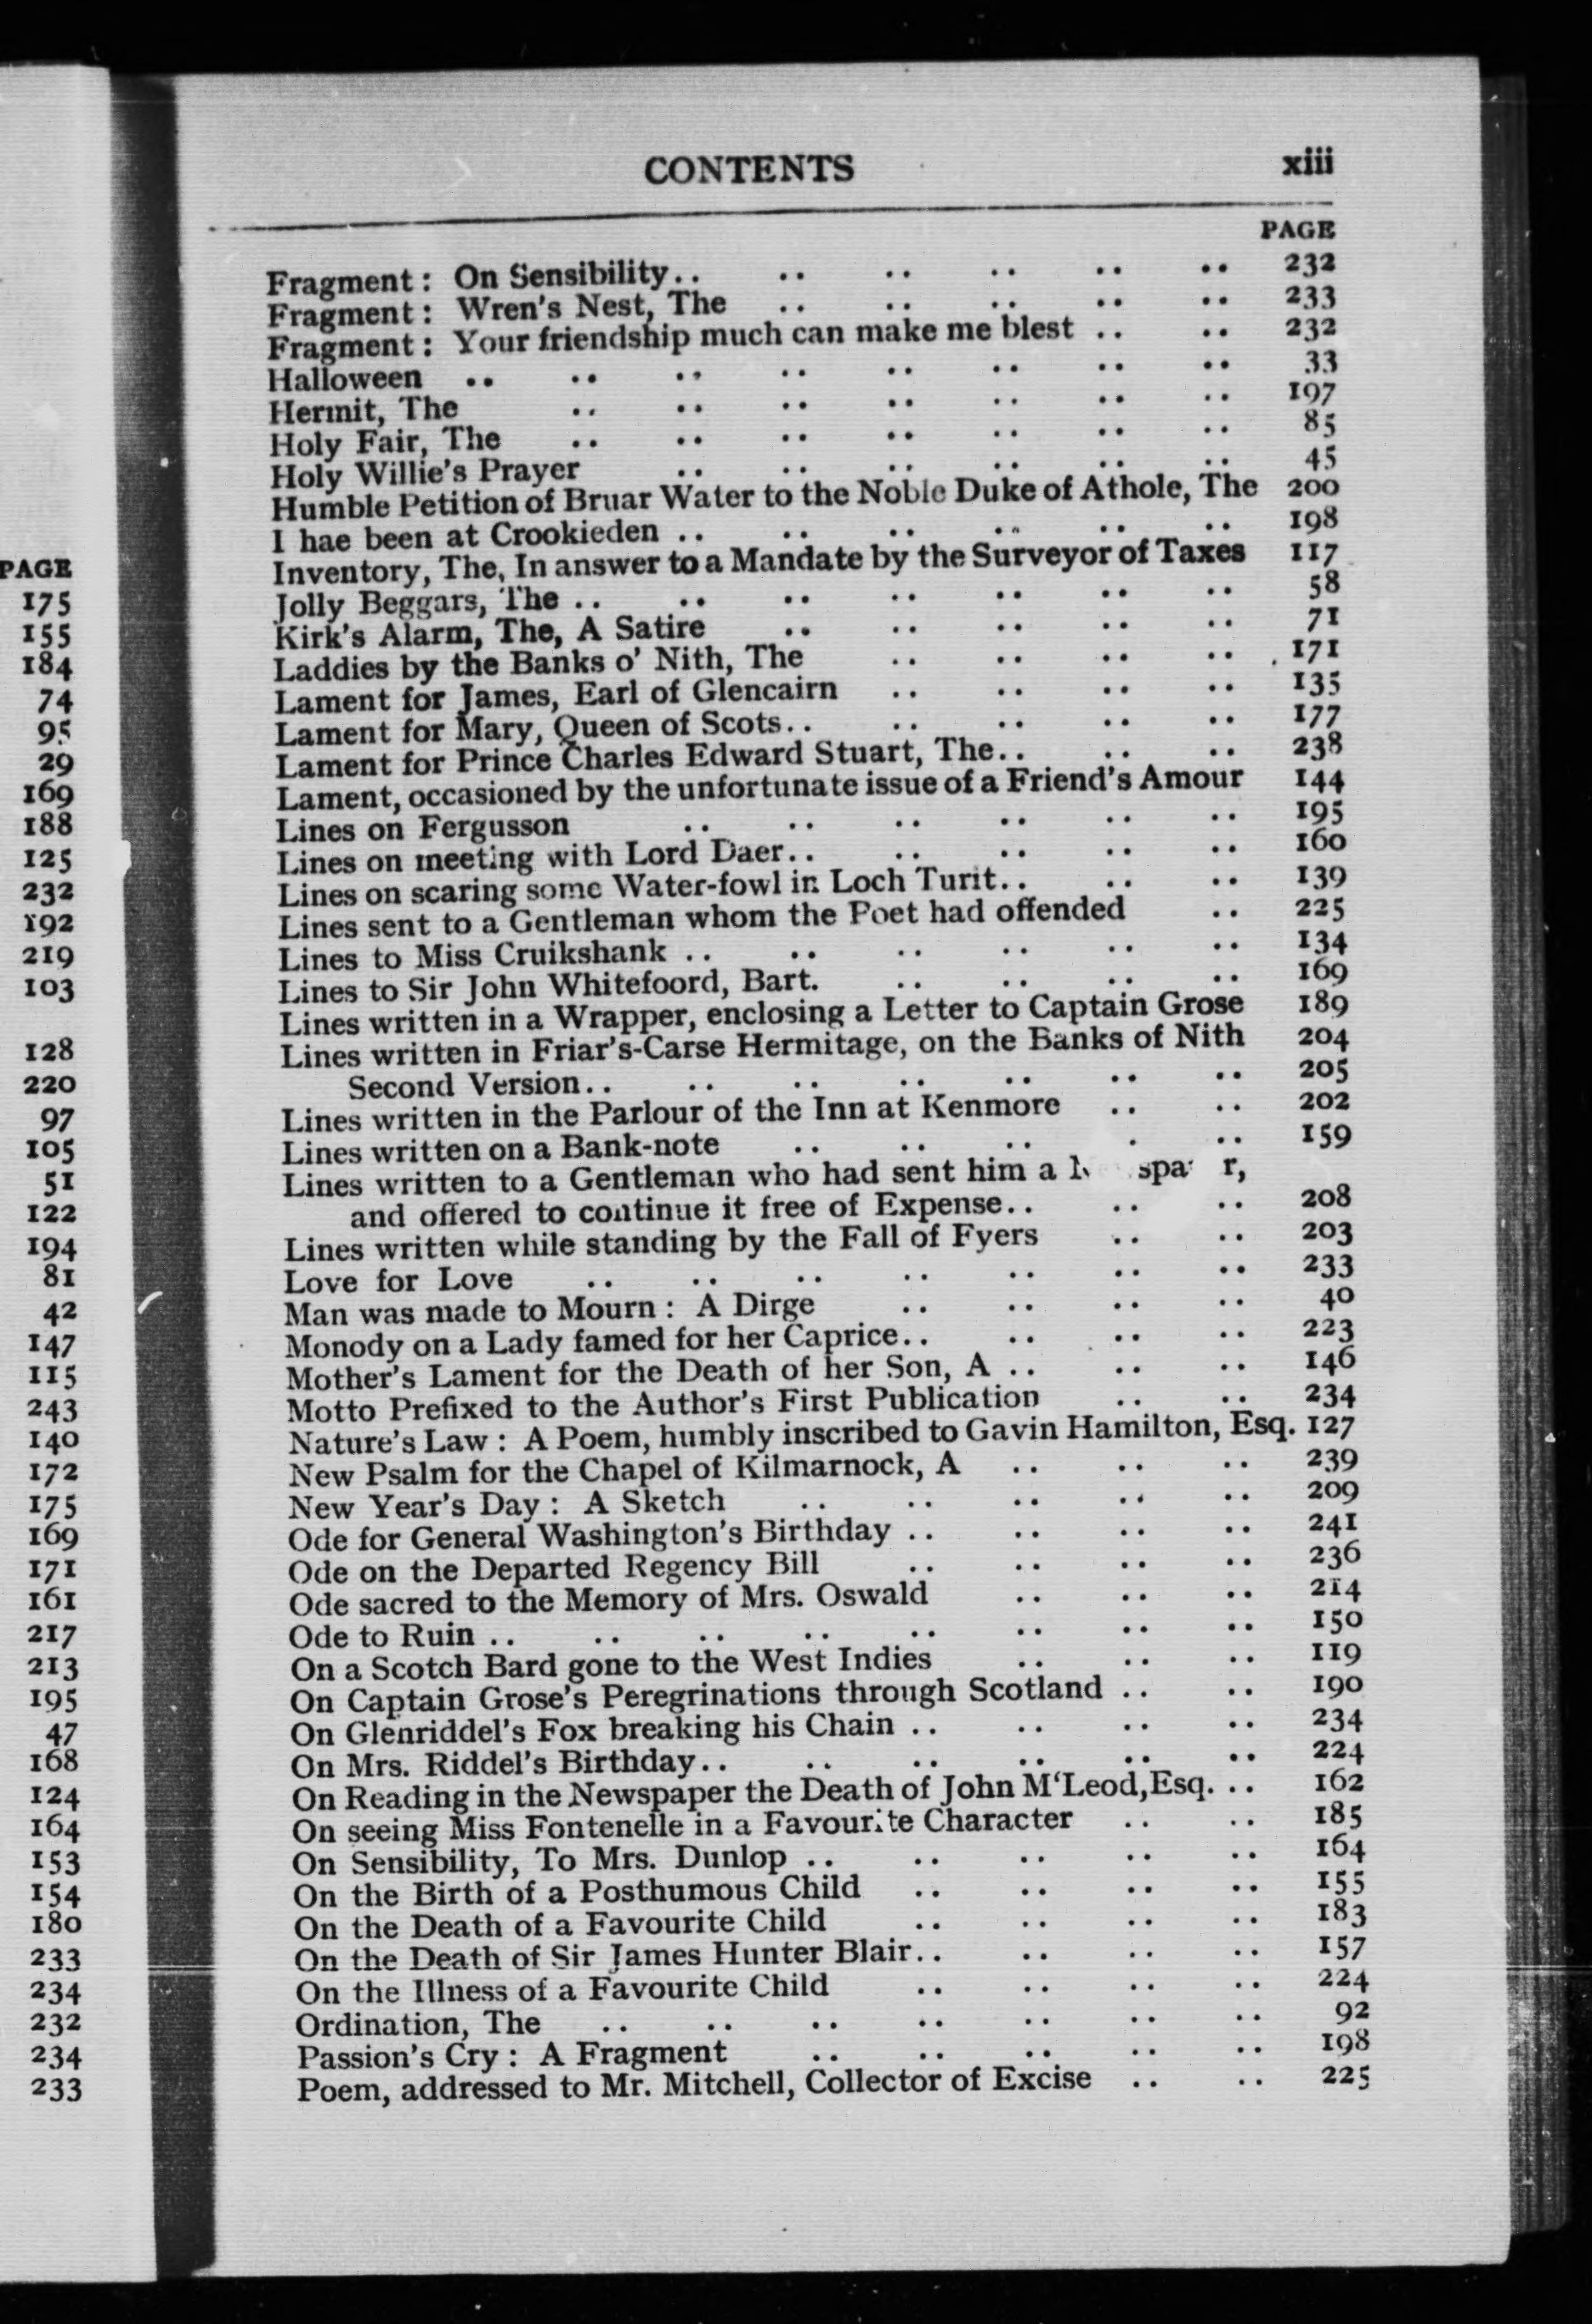 PAGE
175
155
184
74
95
29
169
188
125
232
192
219
103
128
220
97
105
51
122
194
81
42
147
115
243
140
172
175
169
171
161
217
213
195
47
168
124
164
153
154
180
233
234
232
234
233
CONTENTS xiii
PAGE
Fragment : On Sensibility .. .. .. .. .. .. 232
Fragment : Wren's Nest, The .. .. .. .. .. 233
Fragment : Your friendship much can make me blest .. .. 232
Halloween .. .. .. .. .. .. .. .. 33
Hermit, The .. .. .. .. .. .. .. 197
Holy Fair, The .. .. .. .. .. .. .. 85
Holy Willie's Prayer .. .. .. .. .. .. 45
Humble Petition of Bruar Water to the Noble Duke of Athole, The 200
I hae been at Crookieden .. .. .. .. .. .. 198
Inventory, The, In answer to a Mandate by the Surveyor of Taxes 117
Jolly Beggars, The .. .. .. .. .. .. .. 58
Kirk's Alarm, The, A Satire .. .. .. .. .. 71
Laddies by the Banks o' Nith, The .. .. .. .. 171
Lament for James, Earl of Glencairn .. .. .. .. 135
Lament for Mary, Queen of Scots .. .. .. .. .. 177
Lament for Prince Charles Edward Stuart, The .. .. .. 238
Lament, occasioned by the unfortunate issue of a Friend's Amour 144
Lines on Fergusson .. .. .. .. .. .. 195
Lines on meeting with Lord Daer .. .. .. .. .. 160
Lines on scaring some Water-fowl in Loch Turit .. .. .. 139
Lines sent to a Gentleman whom the Poet had offended .. 225
Lines to Miss Cruikshank .. .. .. .. .. .. 134
Lines to Sir John Whitefoord, Bart. .. .. .. .. 169
Lines written in a Wrapper, enclosing a Letter to Captain Grose 189
Lines written in Friar's-Carse Hermitage, on the Banks of Nith 204
Second Version .. .. .. .. .. .. .. 205
Lines written in the Parlour of the Inn at Kenmore .. .. 202
Lines written on a Bank-note .. .. .. . .. 159
Lines written to a Gentleman who had sent him a
and offered to continue it free of Expense .. .. .. 208
Lines written while standing by the Fall of Fyers .. .. 203
Love for Love .. .. .. .. .. .. .. 233
Man was made to Mourn : A Dirge .. .. .. .. 40
Monody on a Lady famed for her Caprice .. .. .. .. 223
Mother's Lament for the Death of her Son, A .. .. .. 146
Motto Prefixed to the Author's First Publication .. .. 234
Nature's Law : A Poem, humbly inscribed to Gavin Hamilton, Esq. 127
New Psalm for the Chapel of Kilmarnock, A .. .. .. 239
New Year's Day : A Sketch .. .. .. .. .. 209
Ode for General Washington's Birthday .. .. .. .. 241
Ode on the Departed Regency Bill .. .. .. .. 236
Ode sacred to the Memory of Mrs. Oswald .. .. .. 214
Ode to Ruin .. .. .. .. .. .. .. .. 150
On a Scotch Bard gone to the West Indies .. .. .. 119
On Captain Grose's Peregrinations through Scotland .. .. 190
On Glenriddel's Fox breaking his Chain .. .. .. .. 234
On Mrs. Riddel's Birthday .. .. .. .. .. .. 224
On Reading in the Newspaper the Death of John M'Leod, Esq. .. 162
On seeing Miss Fontenelle in a Favourite Character .. .. 185
On Sensibility, To Mrs. Dunlop .. .. .. .. .. 164
On the Birth of a Posthumous Child .. .. .. .. 155
On the Death of a Favourite Child .. .. .. .. 183
On the Death of Sir James Hunter Blair .. .. .. .. 157
On the Illness of a Favourite Child .. .. .. .. 224
Ordination, The .. .. .. .. .. .. .. 92
Passion's Cry : A Fragment .. .. .. .. .. 198
Poem, addressed to Mr. Mitchell, Collector of Excise .. .. 225